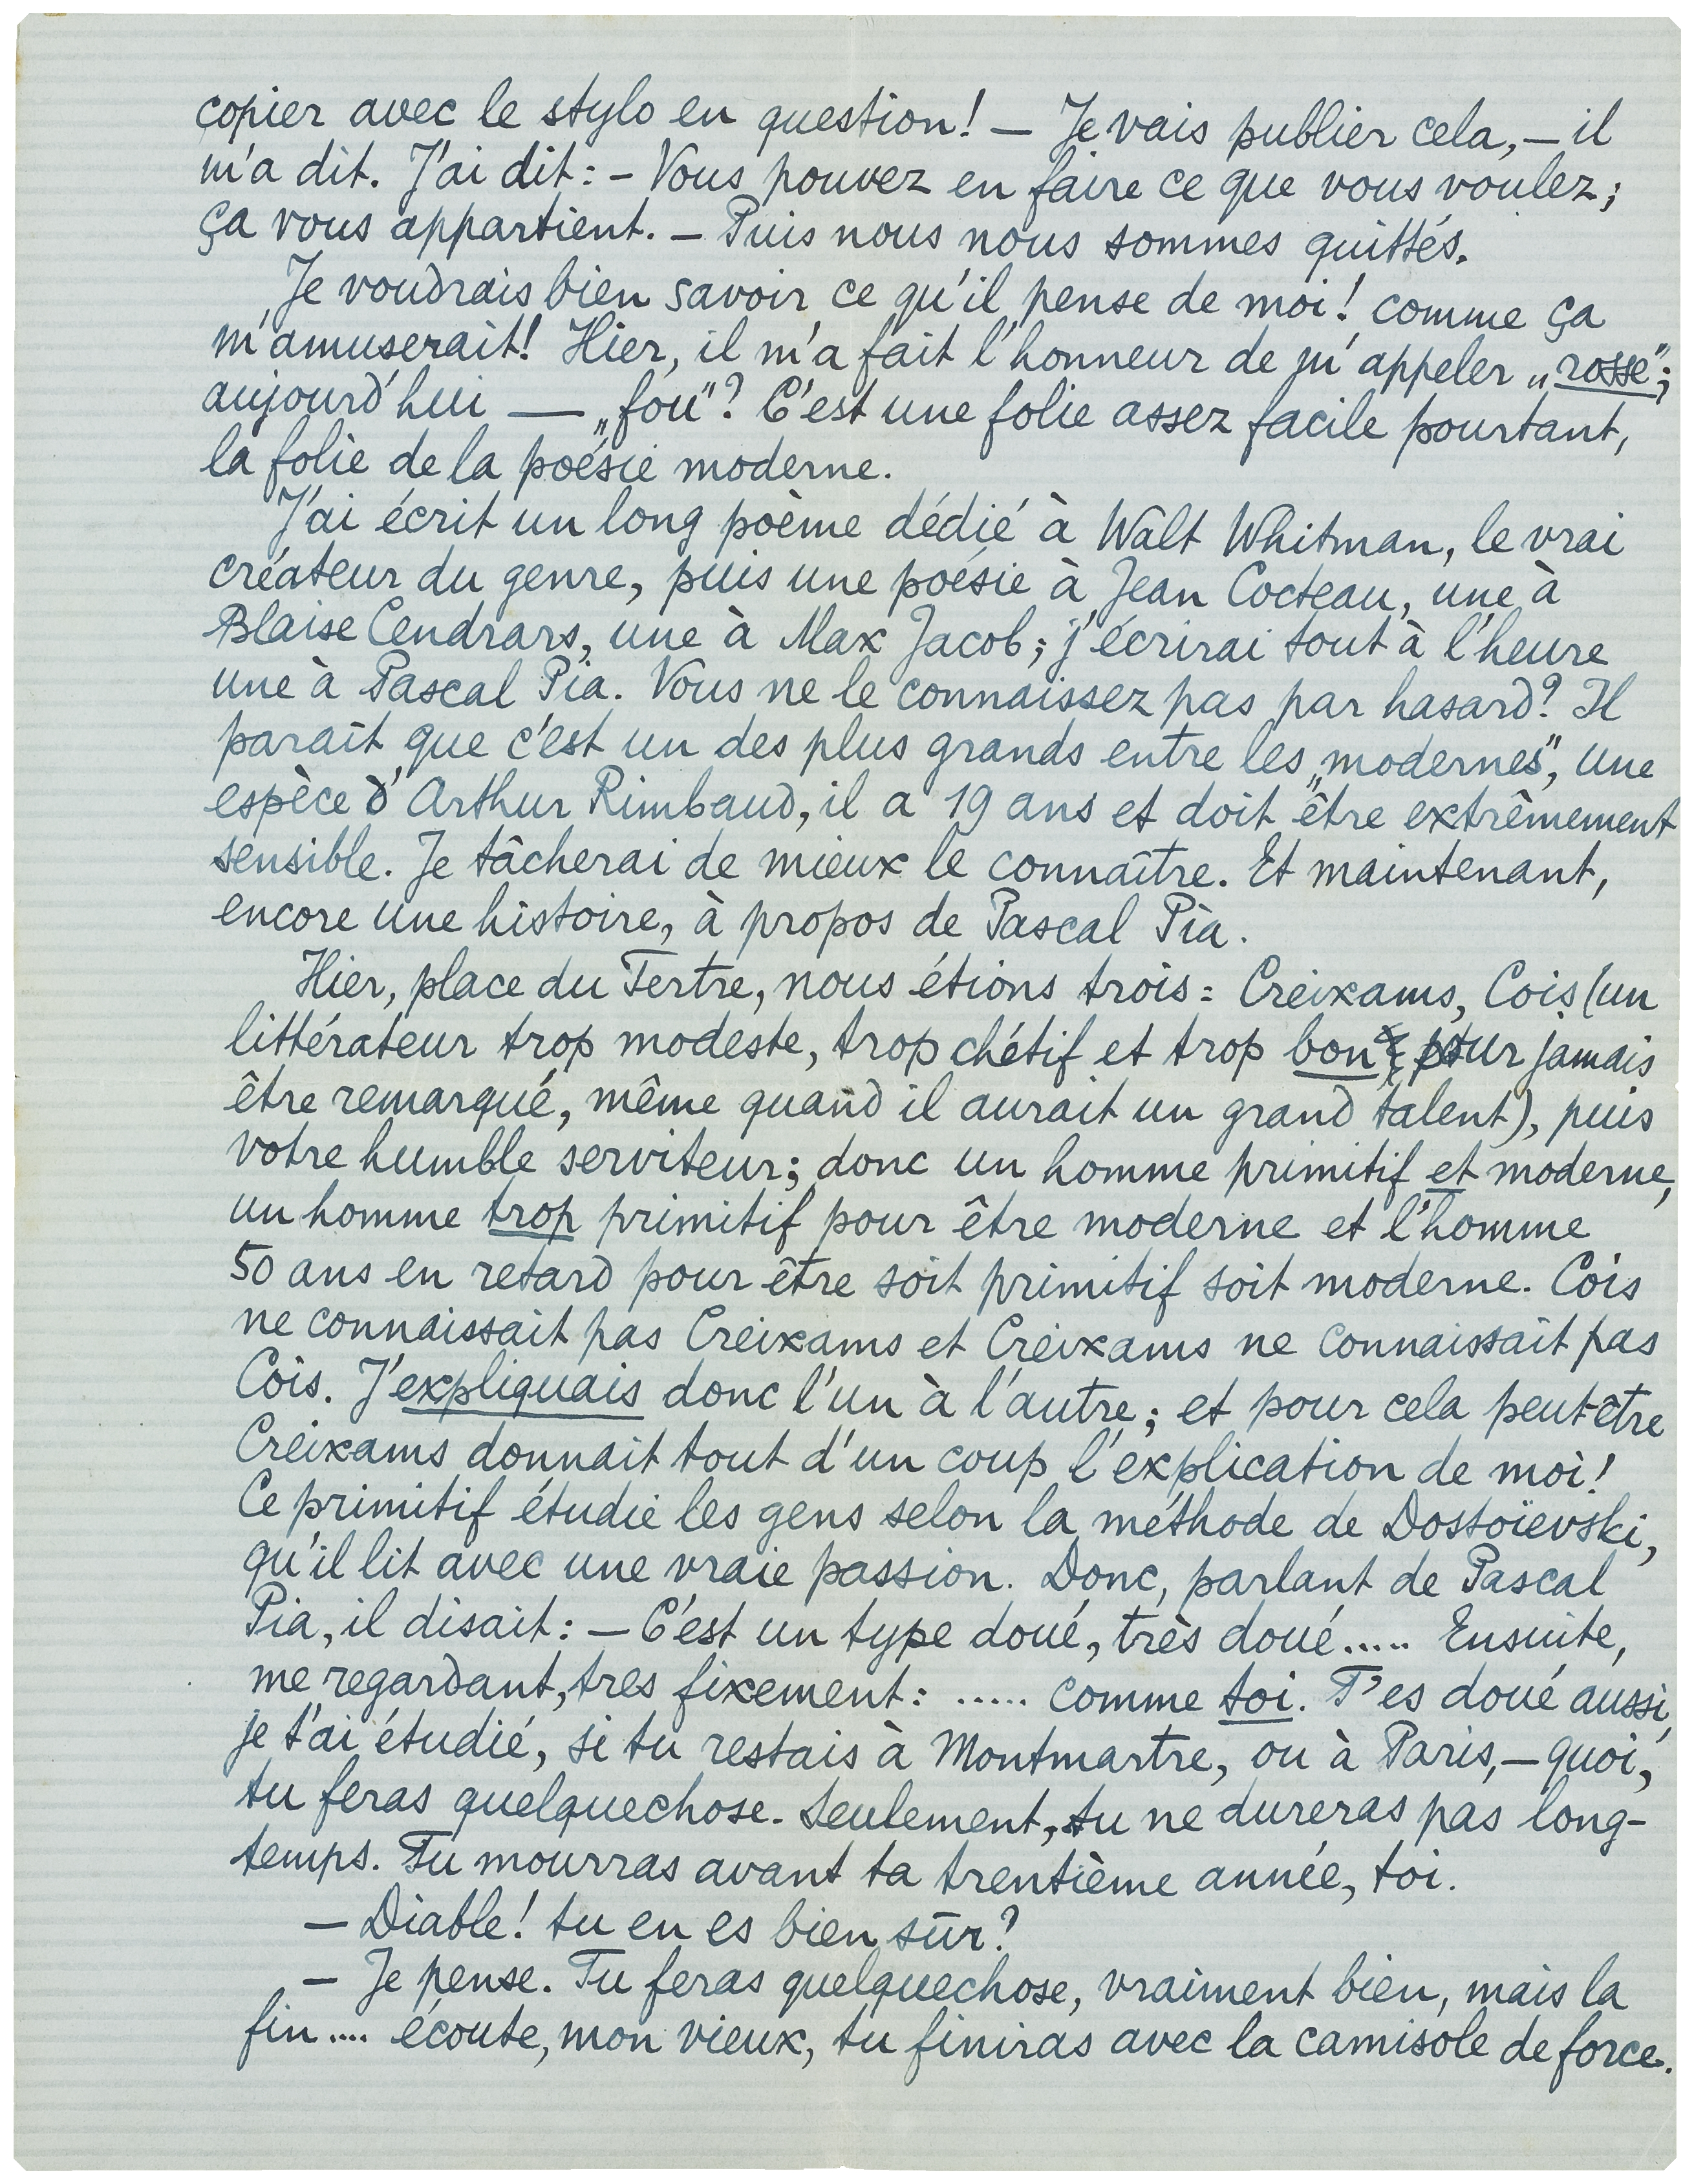 copier avec le stylo en question! — Je vais publier cela, — il
m'a dit. J'ai dit: — Vous pouvez en faire ce que vous voulez;
ça vous appartient. — Puis nous nous sommes quittés.
Je voudrais bien savoir ce qu'il pense de moi! comme ça
m'amuserait! Hier, il m'a fait l'honneur de m'appeler „rosse";
aujourd'hui — „fou"? C'est une folie assez facile pourtant,
la folie de la poésie moderne.
J'ai écrit un long poème dédié à Walt Whitman, le vrai
créateur du genre, puis une poésie à Jean Cocteau, une à
Blaise Cendrars, une à Max Jacob; j'écrirai tout à l'heure
une à Pascal Pia. Vous ne le connaissez pas par hasard? Il
paraît que c'est un des plus grands entre les „modernes", une
espèce d'Arthur Rimbaud, il a 19 ans et doit être extrêmement
sensible. Je tâcherai de mieux le connaître. Et maintenant,
encore une histoire, à propos de Pascal Pia.
Hier, place du Tertre, nous étions trois: Creixams, Cois (un
littérateur trop modeste, trop chétif et trop bon pour jamais
être remarqué, même quand il aurait un grand talent), puis
votre humble serviteur; donc un homme primitif et moderne,
un homme trop primitif pour être moderne et l'homme
50 ans en retard pour être soit primitif soit moderne. Cois
ne connaissait pas Creixams et Creixams ne connaissait pas
Cois. J'expliquais donc l'un à l'autre; et pour cela peut-être
Creixams donnait tout d'un coup l'explication de moi!
Ce primitif étudie les gens selon la méthode de Dostoïevski,
qu'il lit avec une vraie passion. Donc, parlant de Pascal
Pia, il disait: — C'est un type doué, très doué..... Ensuite,
me regardant, tres fixement: ..... comme toi. T'es doué aussi,
je t'ai étudié, si tu restais à Montmartre, ou à Paris, — quoi,
tu feras quelquechose. Seulement, tu ne dureras pas long-
temps. Tu mourras avant ta trentième année, toi.
— Diable! tu en es bien sûr?
— Je pense. Tu feras quelquechose, vraiment bien, mais la
fin.... écoute, mon vieux, tu finiras avec la camisole de force.